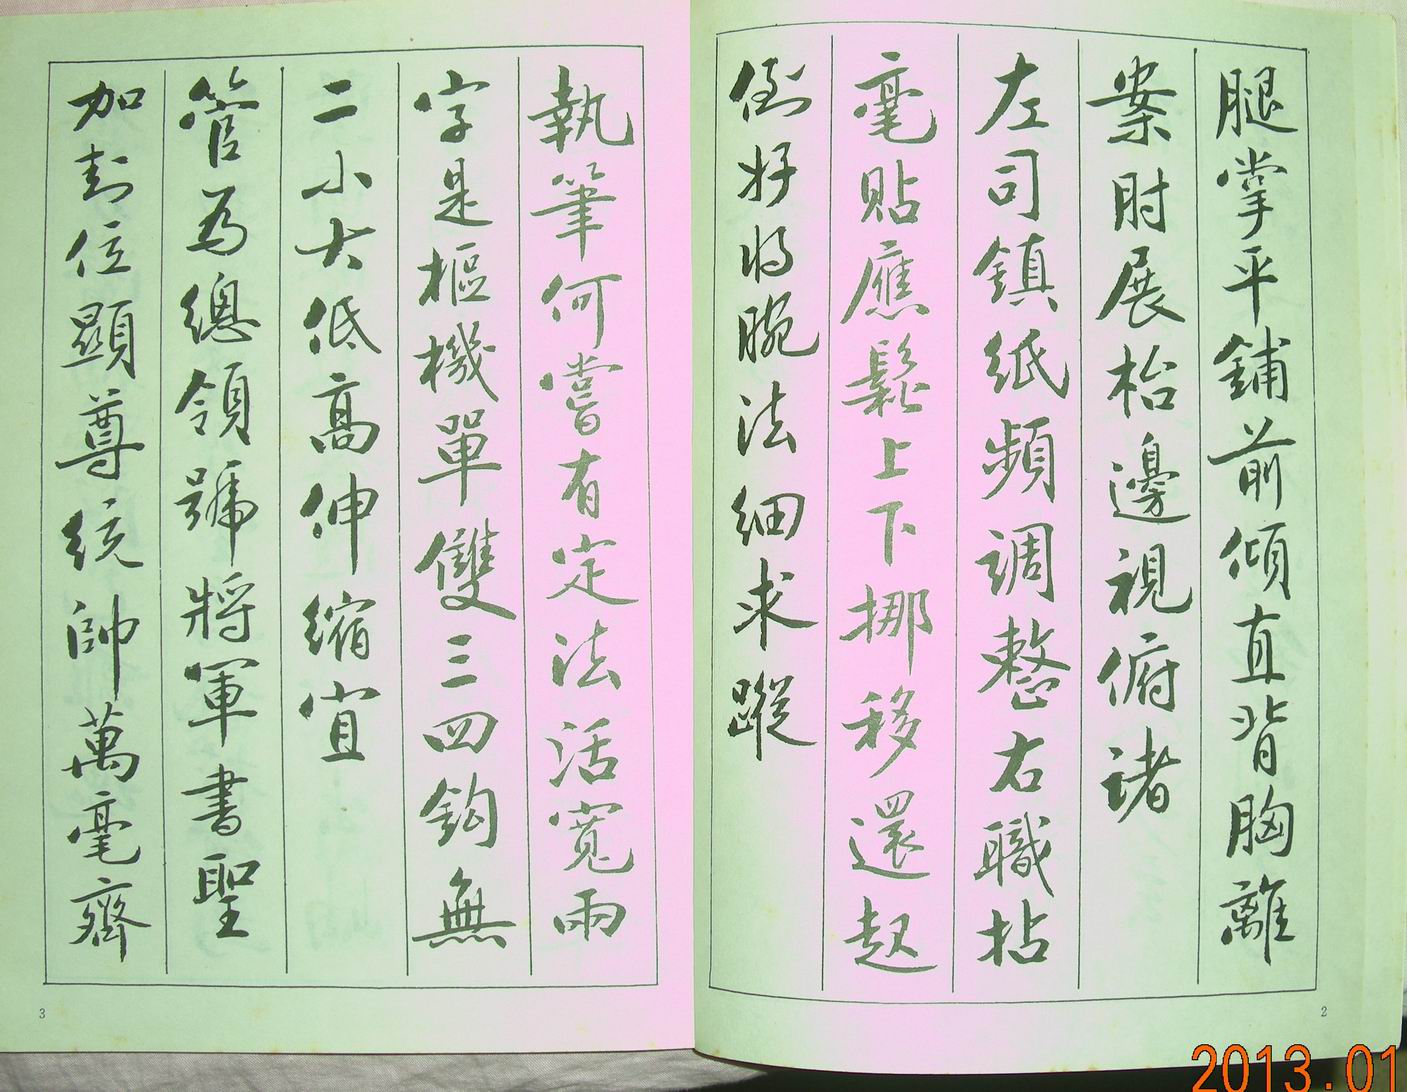 腿掌平鋪前傾直背胸離
案肘展枱邊視俯諸
左司鎮紙頻調整右職拈
毫貼應鬆上下挪移還起
倒好將腕法細求蹤
2
執筆何嘗有定法活寬兩
字是樞機單雙三四鈎無
二小大低高伸縮宜
管為總領號將軍書聖
加封位顯尊統帥萬毫齊
3
2013.01